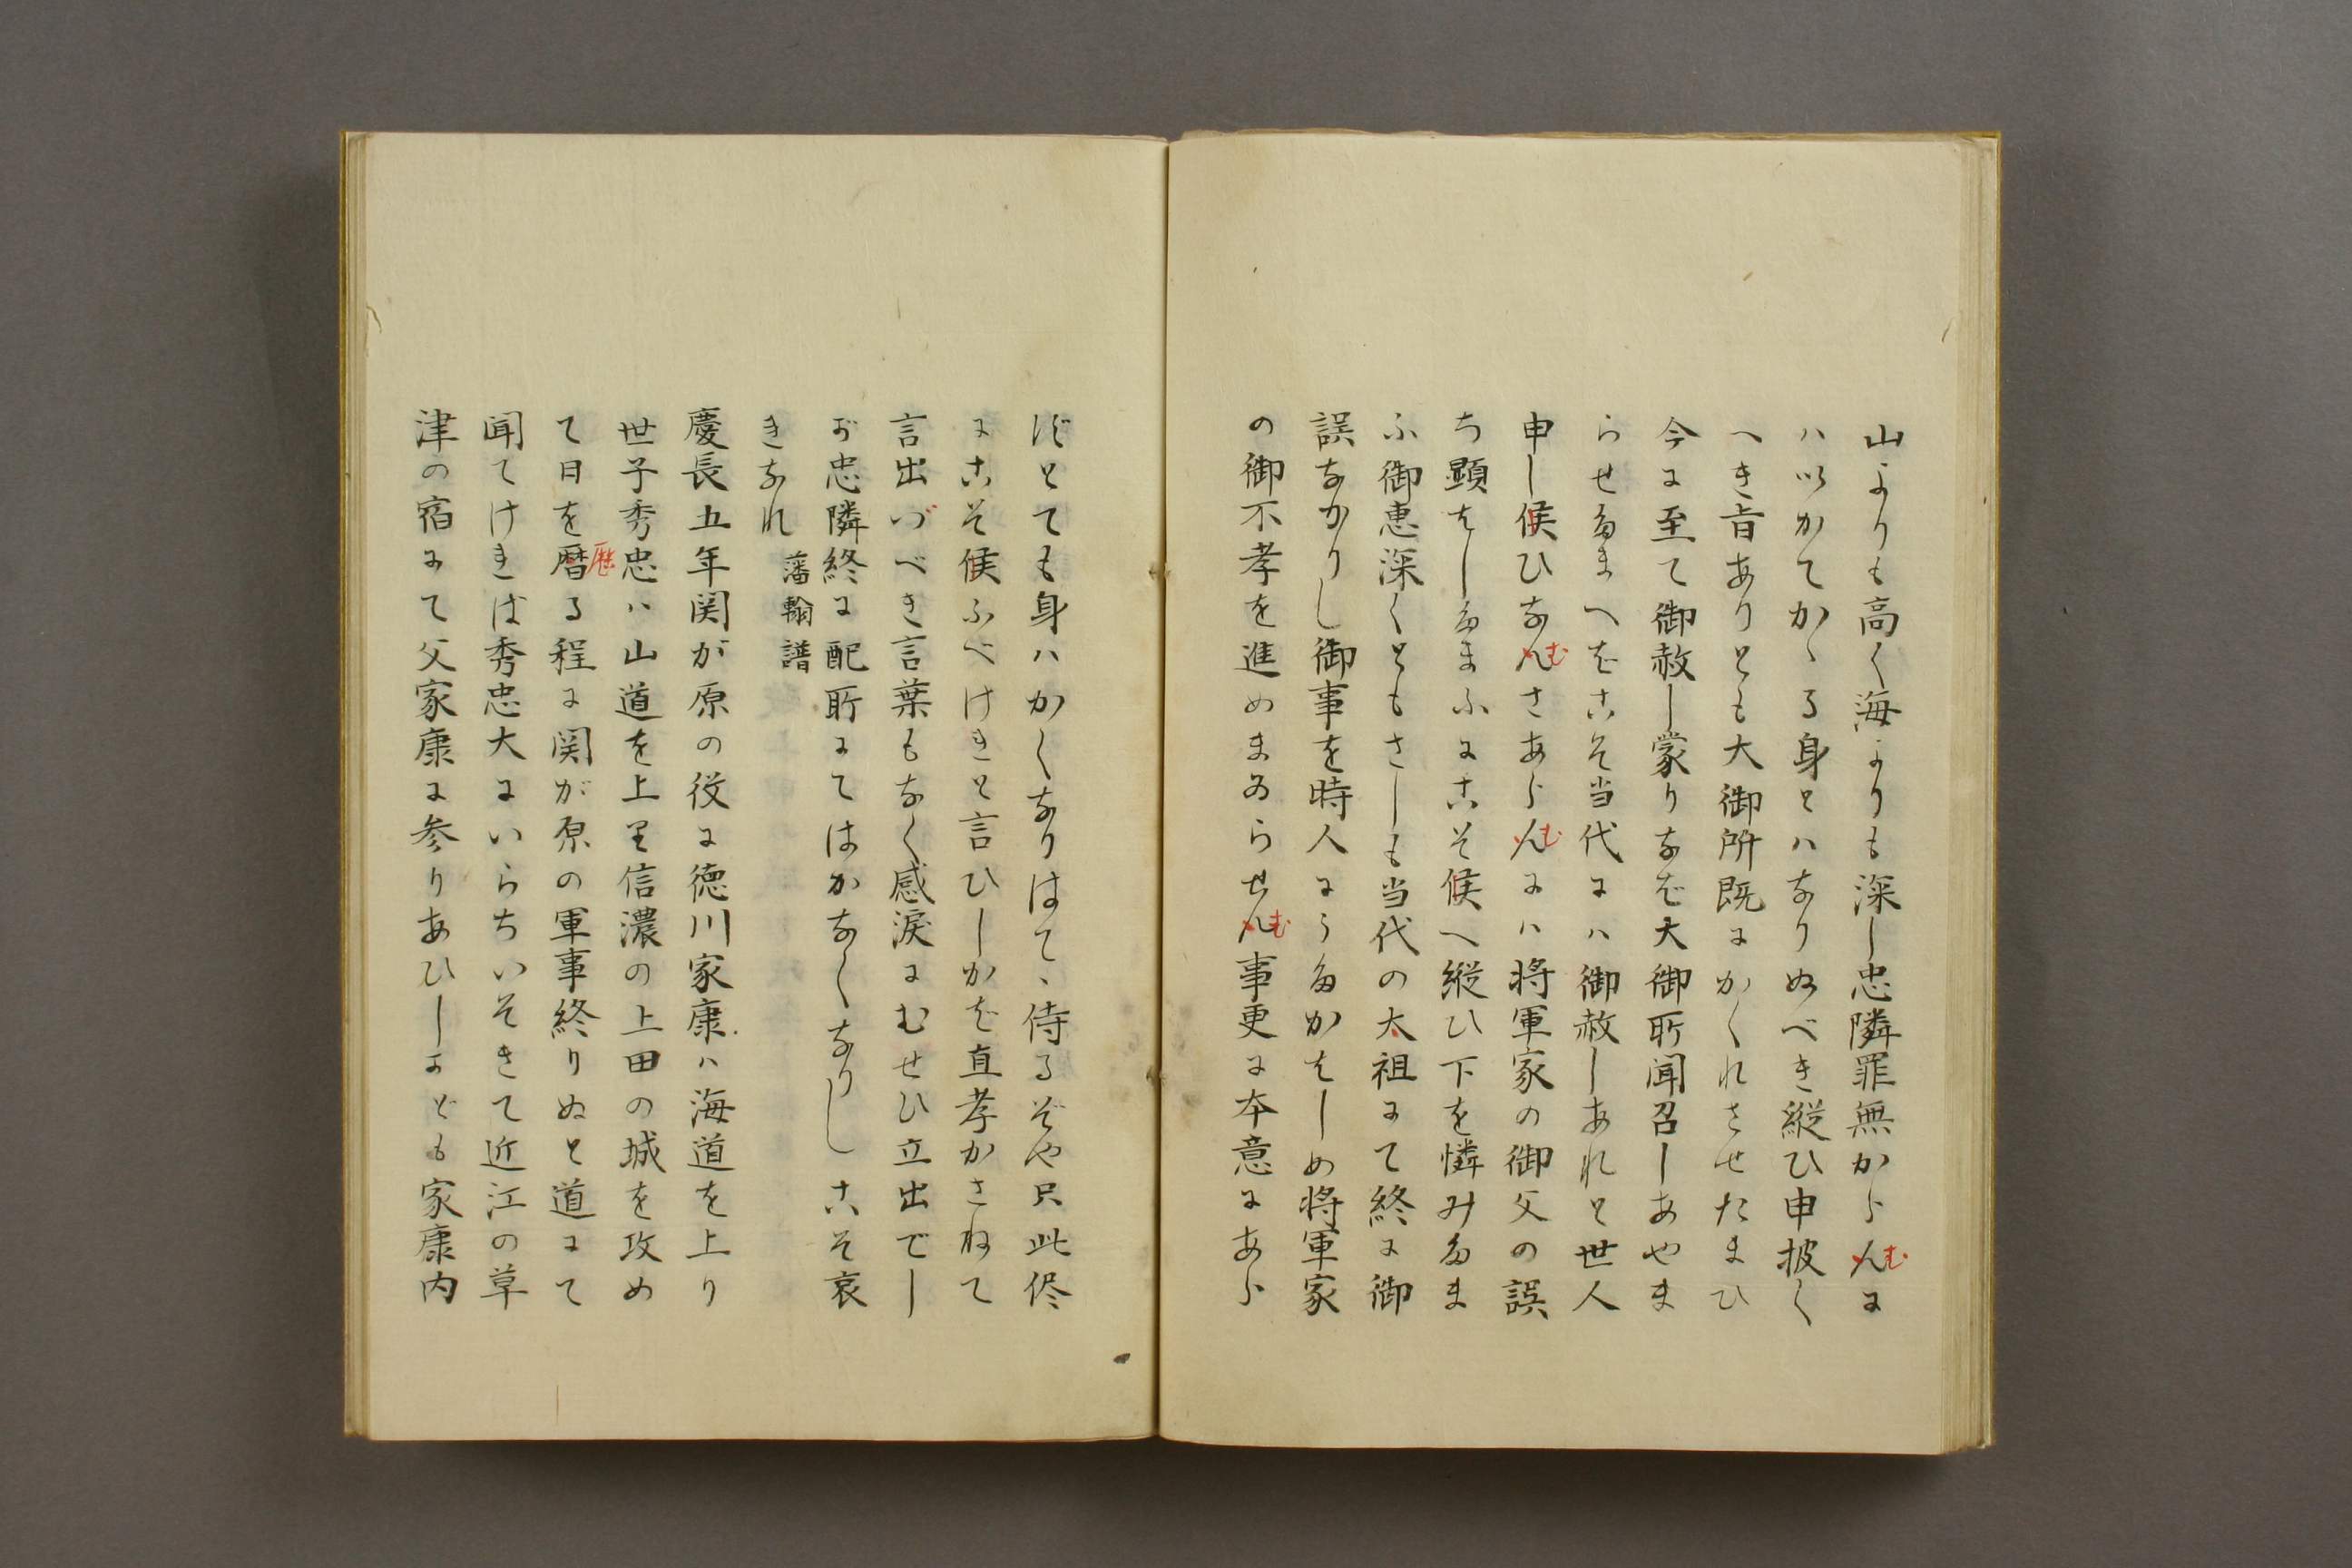 山よりも高く海よりも深し忠隣罪無からんむに
ハ以かてかゝる身とハなりぬべき縦ひ申披く
へき旨ありとも大御所既にかくれさせたまひ
今に至て御赦し蒙りなば大御所聞召しあやま
らせたまへばこそ当代にハ御赦しあれと世人
申し候ひなんむさあらんむにハ将軍家の御父の誤
ち顕はしたまふにこそ候へ縦ひ下を憐みたま
ふ御恵深くともさしも当代の太祖にて終に御
誤なかりし御事を時人にうたかはしめ将軍家
の御不孝を進めまゐらせんむ事更に本意にあら
ずとても身ハかくなりはてゝ侍るぞや只此侭
にこそ候ふべけきと言ひしかば直孝かさねて
言出づべき言葉もなく感涙にむせひ立出でし
が忠隣終に配所にてはかなくなりしこそ哀
きなれ 藩翰譜
慶長五年関が原の役に徳川家康ハ海道を上り
世子秀忠ハ山道を上里信濃の上田の城を攻め
て日を暦歴る程に関が原の軍事終りぬと道にて
聞てけきば秀忠大にいらちいそきて近江の草
津の宿にて父家康に参りあひしかども家康内